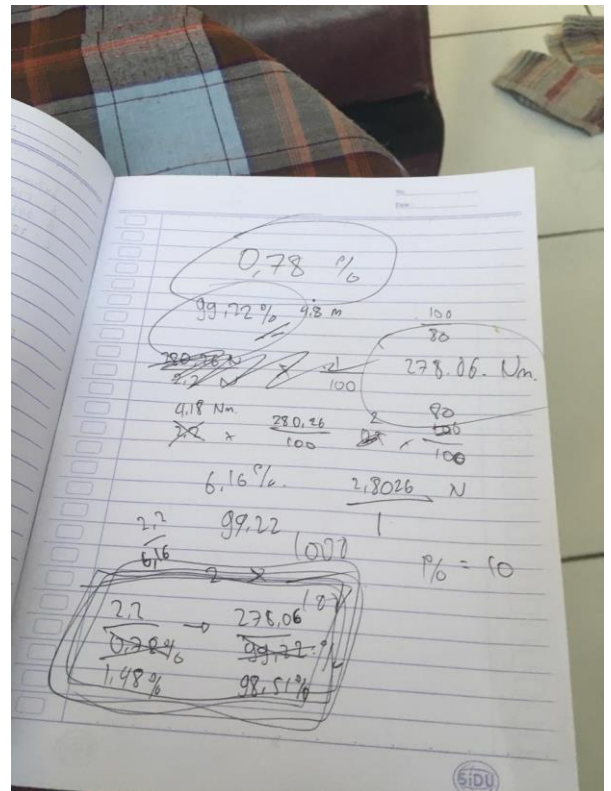 No.
Date
0,78 %
99,22% 4.8 m
100
80
280.26 N
2,2
100
278.06. Nm.
4,18 Nm.
x 280,26
100
2
80
100
100
6,16%.
2,8026 N
1
2,2
6,16
99,22
% = 10
2,2 → 278,06
0,78% 99,22%
1,48% 98,51%
SiDU